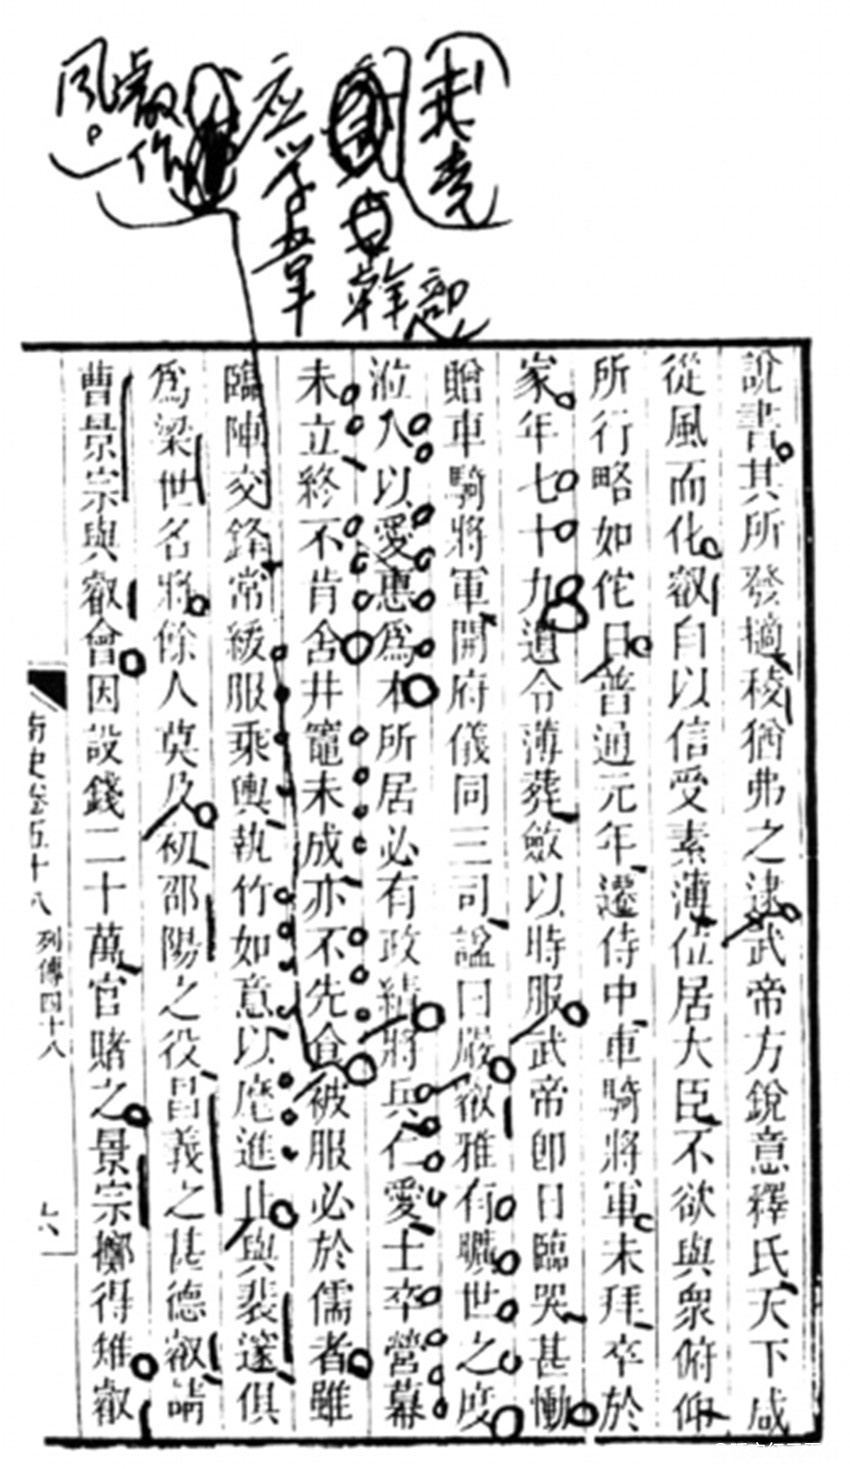 我党
國
干部
应学韦
叡作
风。
說書其所發擿稜猶弗之逮武帝方銳意釋氏天下咸
從風而化叡自以信受素薄位居大臣不欲與衆俯仰
所行略如佗日普通元年遷侍中車騎將軍未拜卒於
家年七十九遺令薄葬斂以時服武帝卽日臨哭甚慟
贈車騎將軍開府儀同三司諡曰嚴叡雅有曠世之度
涖人以愛惠爲本所居必有政績將兵仁愛士卒營幕
未立終不肯舍井竈未成亦不先食被服必於儒者雖
臨陣交鋒常緩服乘輿執竹如意以麾進止與裴邃俱
爲梁世名將餘人莫及初邵陽之役昌義之甚德叡請
曹景宗與叡會因設錢二十萬官賭之景宗擲得雉叡
南史卷五十八 列傳四十八
六